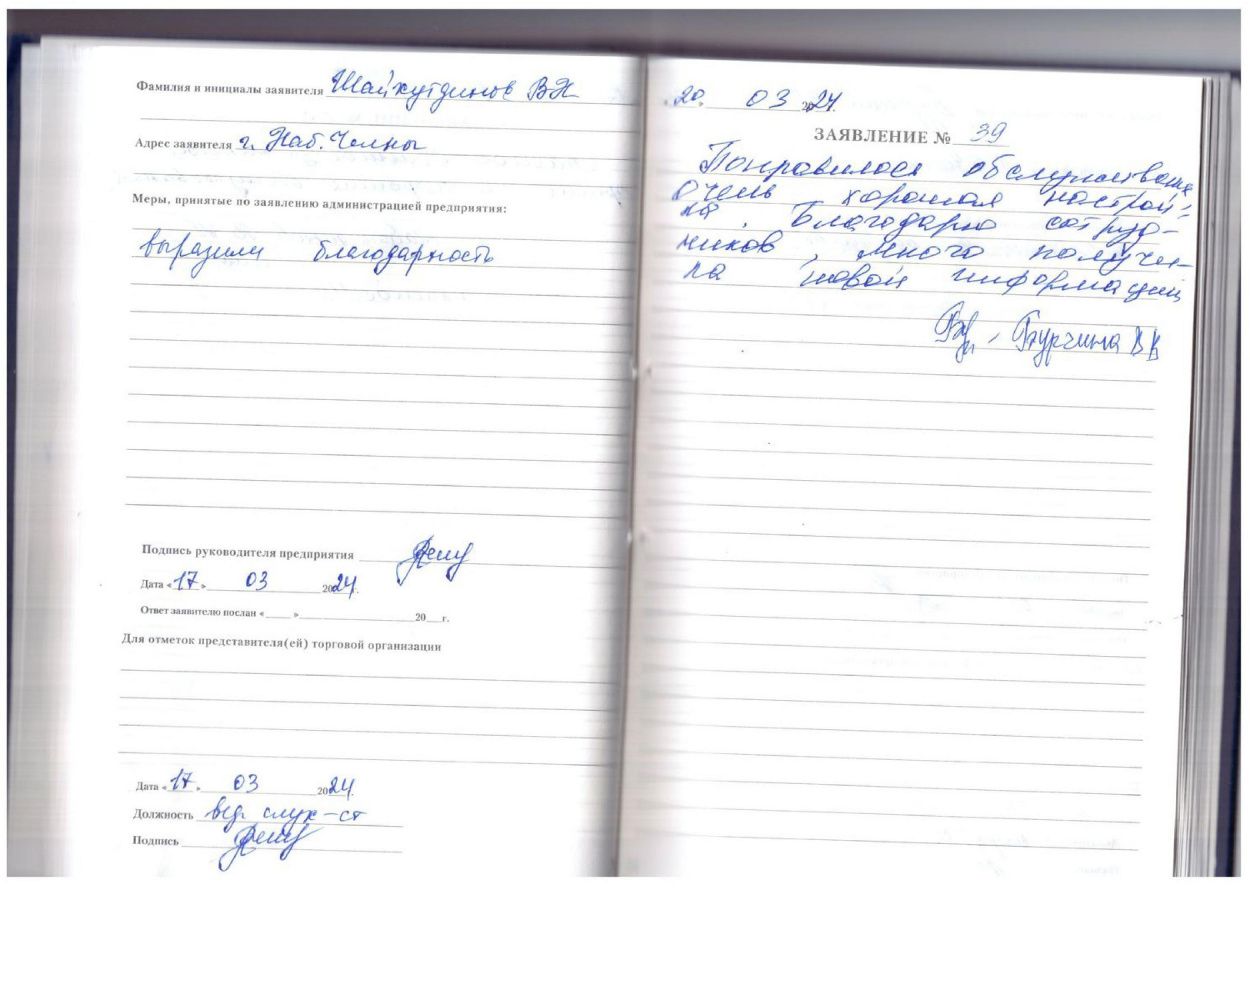 Фамилия и инициалы заявителя Шайхутдинов В Н
Адрес заявителя г. Наб. Челны
Меры, принятые по заявлению администрацией предприятия:
выразили благодарность
Подпись руководителя предприятия
Дата «17» 03 2024г.
Ответ заявителю послан «____»____ 20__г.
Для отметок представителя(ей) торговой организации
Дата «17» 03 2024г.
Должность вед. слух-ст
Подпись
20. 03 2024.
ЗАЯВЛЕНИЕ № 39
Понравилось обслуживание
очень хорошая настрой-
ка. Благодарю сотруд-
ников, много получи-
ла новой информации
Бурчина В В